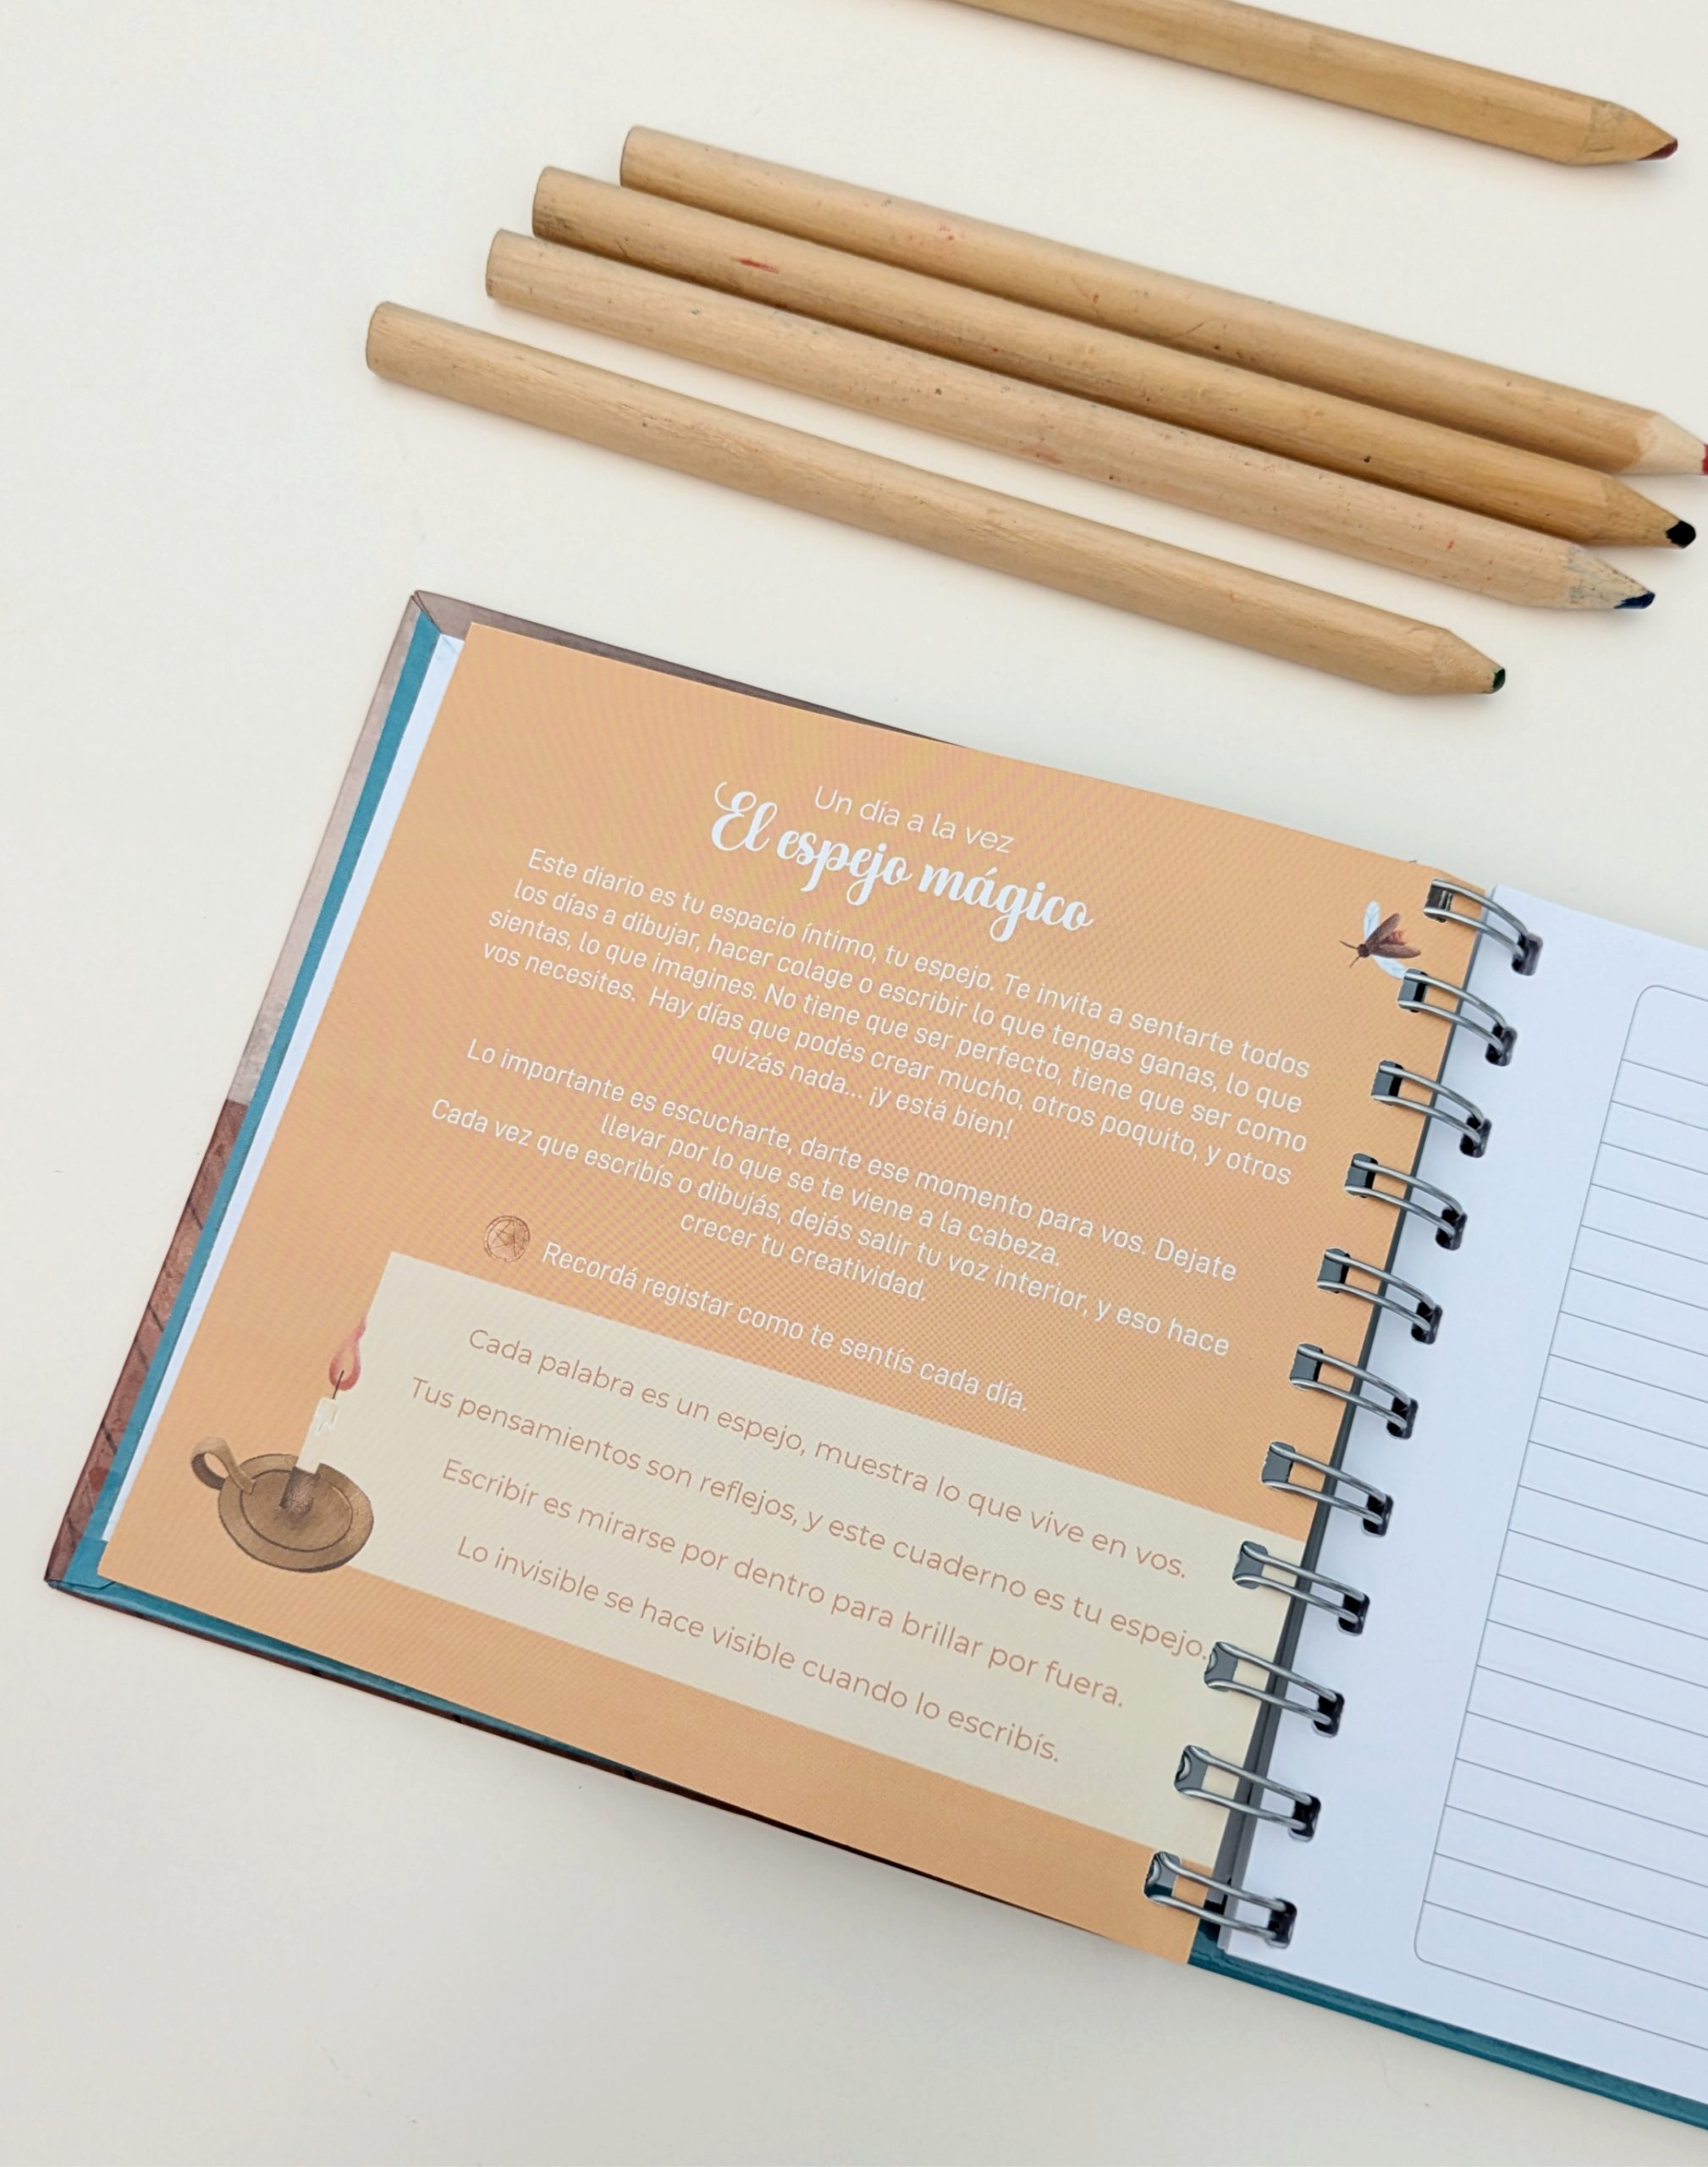 Un día a la vez
El espejo mágico
Este diario es tu espacio íntimo, tu espejo. Te invita a sentarte todos
los días a dibujar, hacer colage o escribir lo que tengas ganas, lo que
sientas, lo que imagines. No tiene que ser perfecto, tiene que ser como
vos necesites. Hay días que podés crear mucho, otros poquito, y otros
quizás nada... ¡y está bien!
Lo importante es escucharte, darte ese momento para vos. Dejate
llevar por lo que se te viene a la cabeza.
Cada vez que escribís o dibujás, dejás salir tu voz interior, y eso hace
crecer tu creatividad.
Recordá registar como te sentís cada día.
Cada palabra es un espejo, muestra lo que vive en vos.
Tus pensamientos son reflejos, y este cuaderno es tu espejo.
Escribir es mirarse por dentro para brillar por fuera.
Lo invisible se hace visible cuando lo escribís.